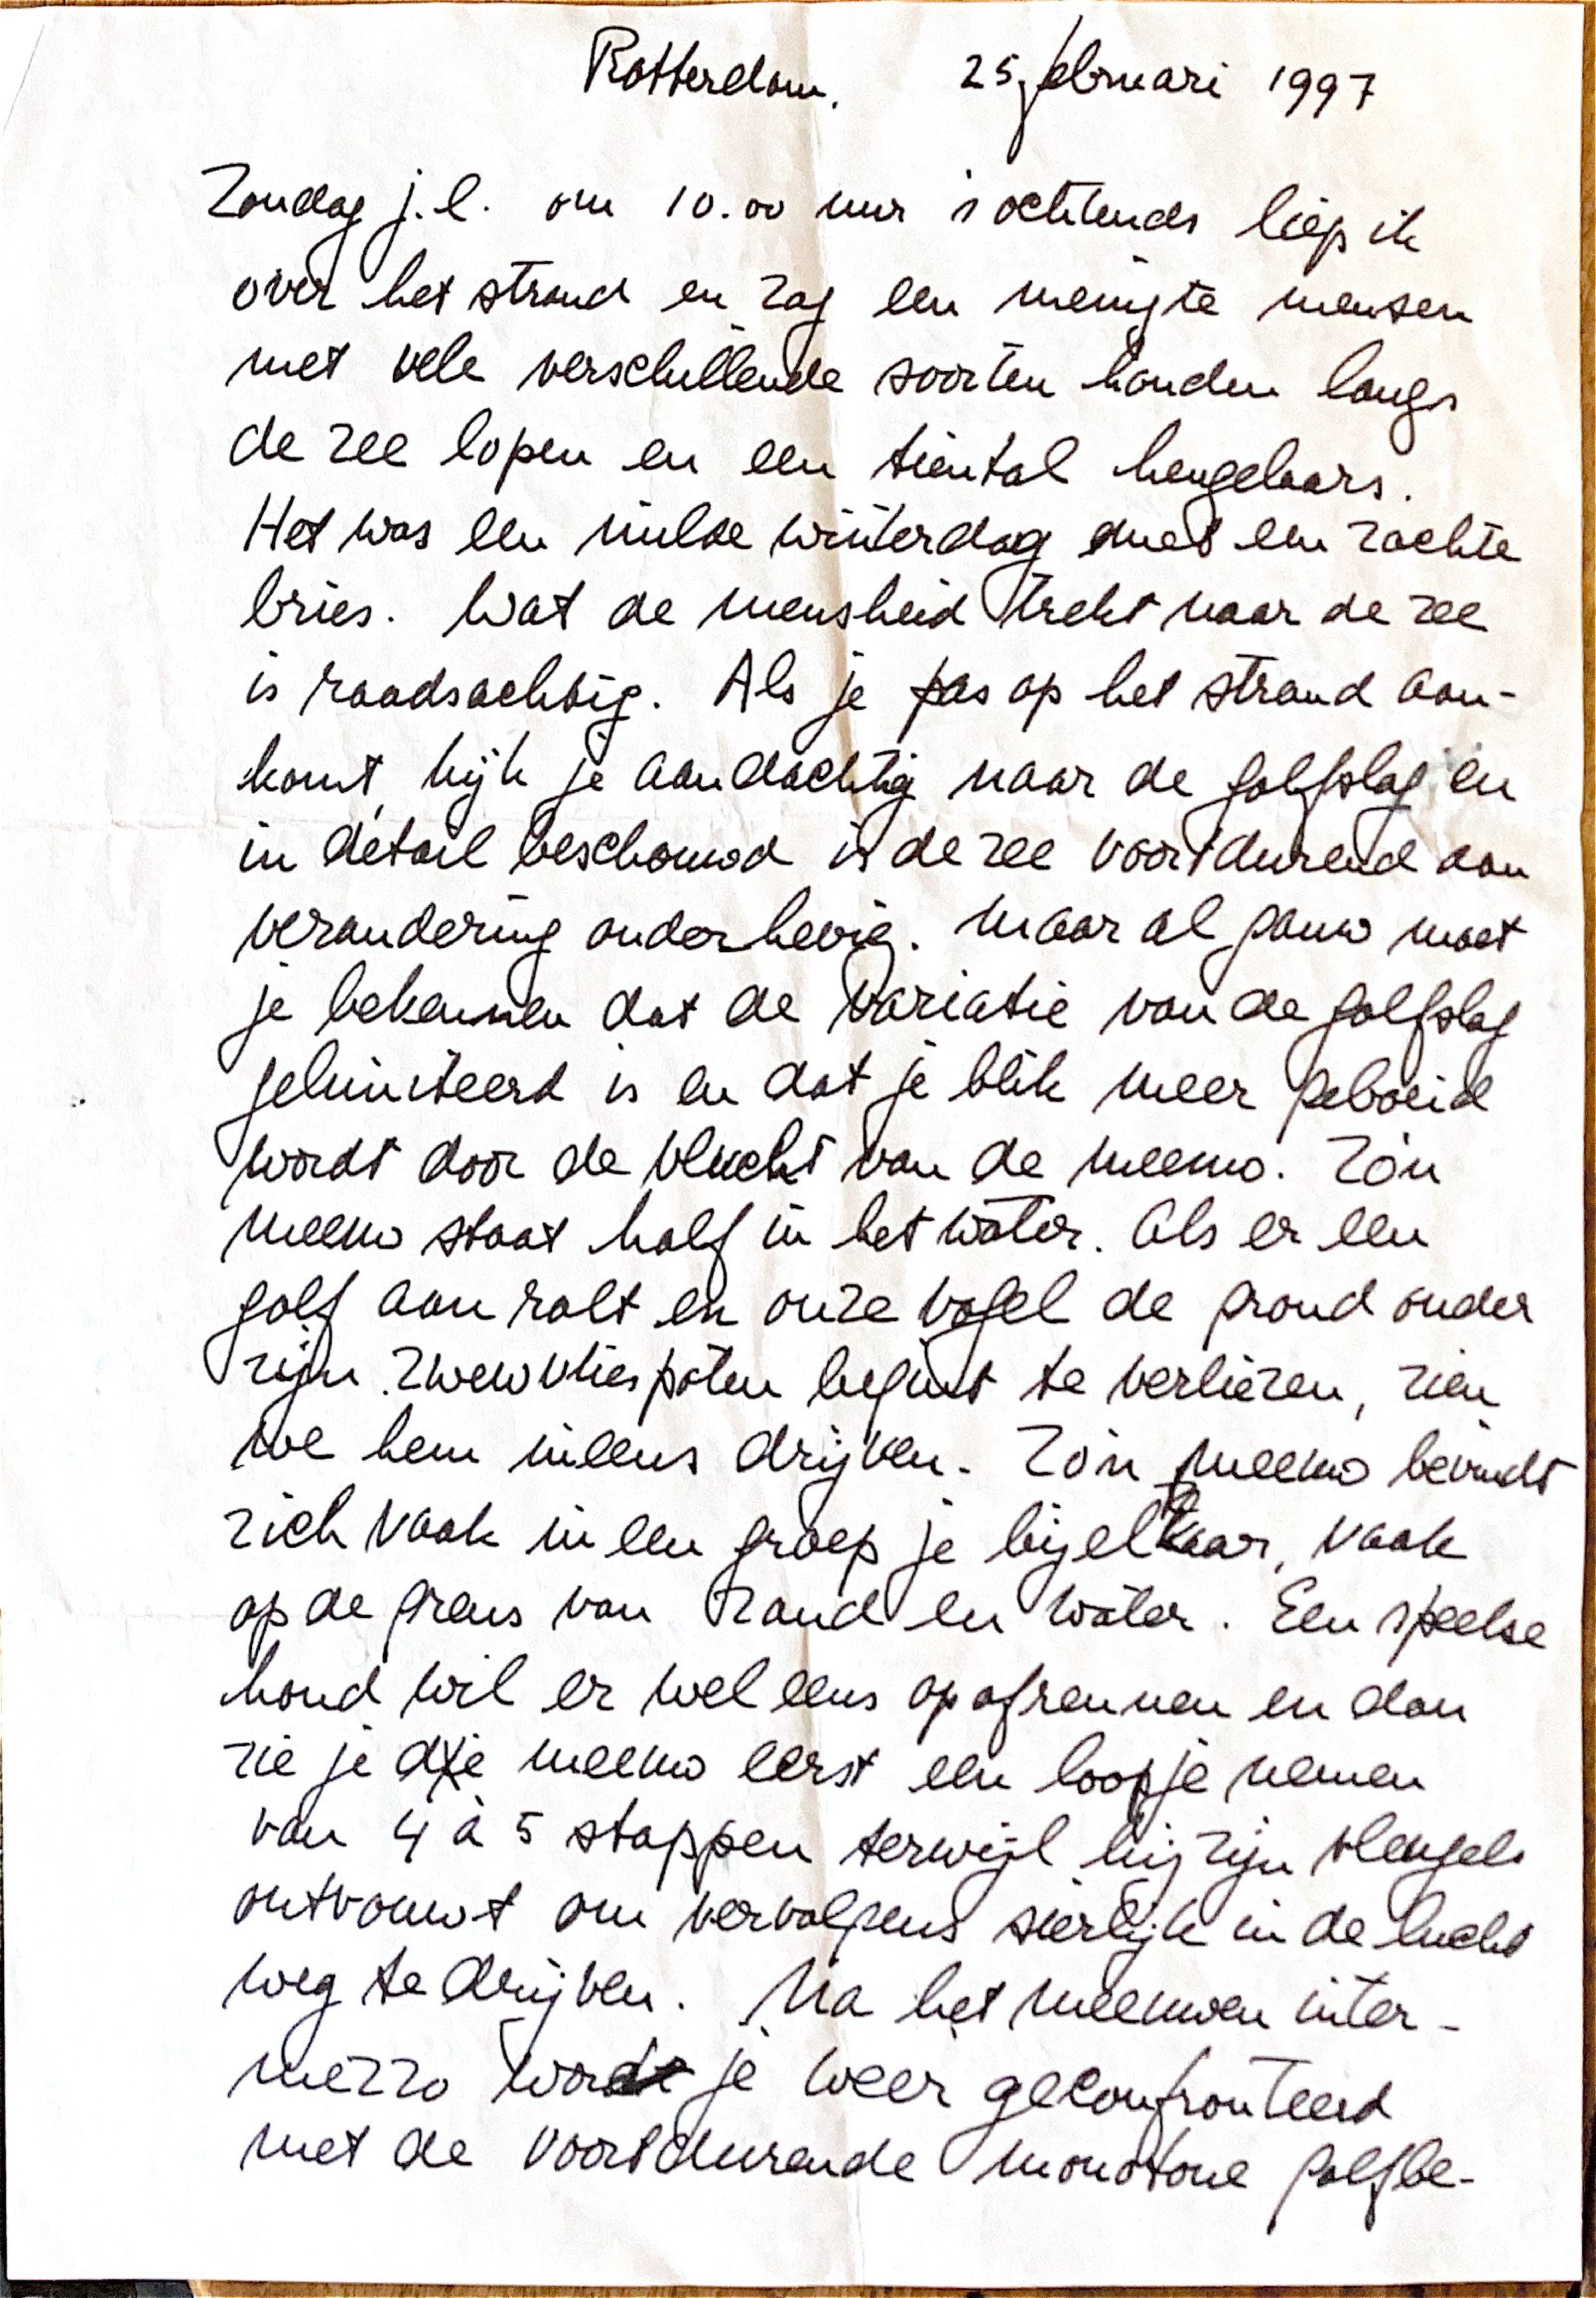 Rotterdam. 25 februari 1997
Zondag j.l. om 10.00 uur 's ochtends liep ik
over het strand en zag een menigte mensen
met vele verschillende soorten honden langs
de zee lopen en een tiental hengelaars.
Het was een milde winterdag met een zachte
bries. Wat de mensheid trekt naar de zee
is raadsachtig. Als je pas op het strand aan-
komt, kijk je aandachtig naar de golfslag en
in detail beschouwd is de zee voortdurend aan
verandering onderhevig. Maar al gauw moet
je bekennen dat de variatie van de golfslag
gelimiteerd is en dat je blik meer geboeid
wordt door de vlucht van de meeuw. Zo'n
meeuw staat half in het water. Als er een
golf aan rolt en onze vogel de grond onder
zijn zwemvliespoten begint te verliezen, zien
we hem ineens drijven. Zo'n meeuw bevindt
zich vaak in een groepje bijelkaar, vaak
op de grens van zand en water. Een speelse
hond wil er wel eens op afrennen en dan
zie je die meeuw eerst een loopje nemen
van 4 à 5 stappen terwijl hij zijn vleugels
ontvouwt om vervolgens sierlijk in de lucht
weg te drijven. Na het meeuwen inter-
mezzo word je weer geconfronteerd
met de voortdurende monotone golfbe-